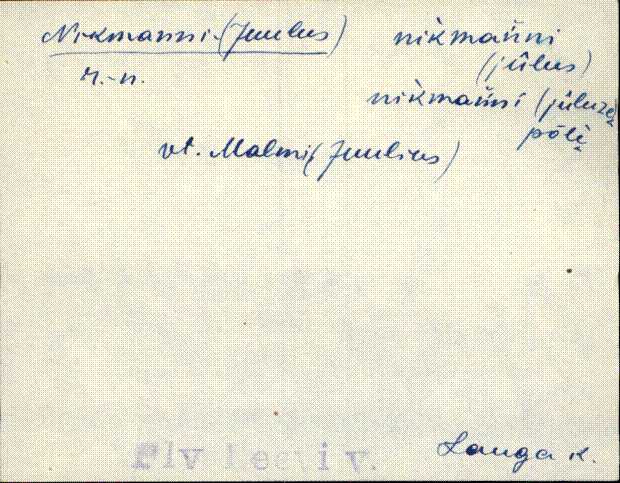 Nikmanni-(Juulus) nikmanni
r.-n. (jūlus)
nikmanni (jūluze
pǒlè
vt. Malmi (Juulius)
Elv v.
Lauga k.